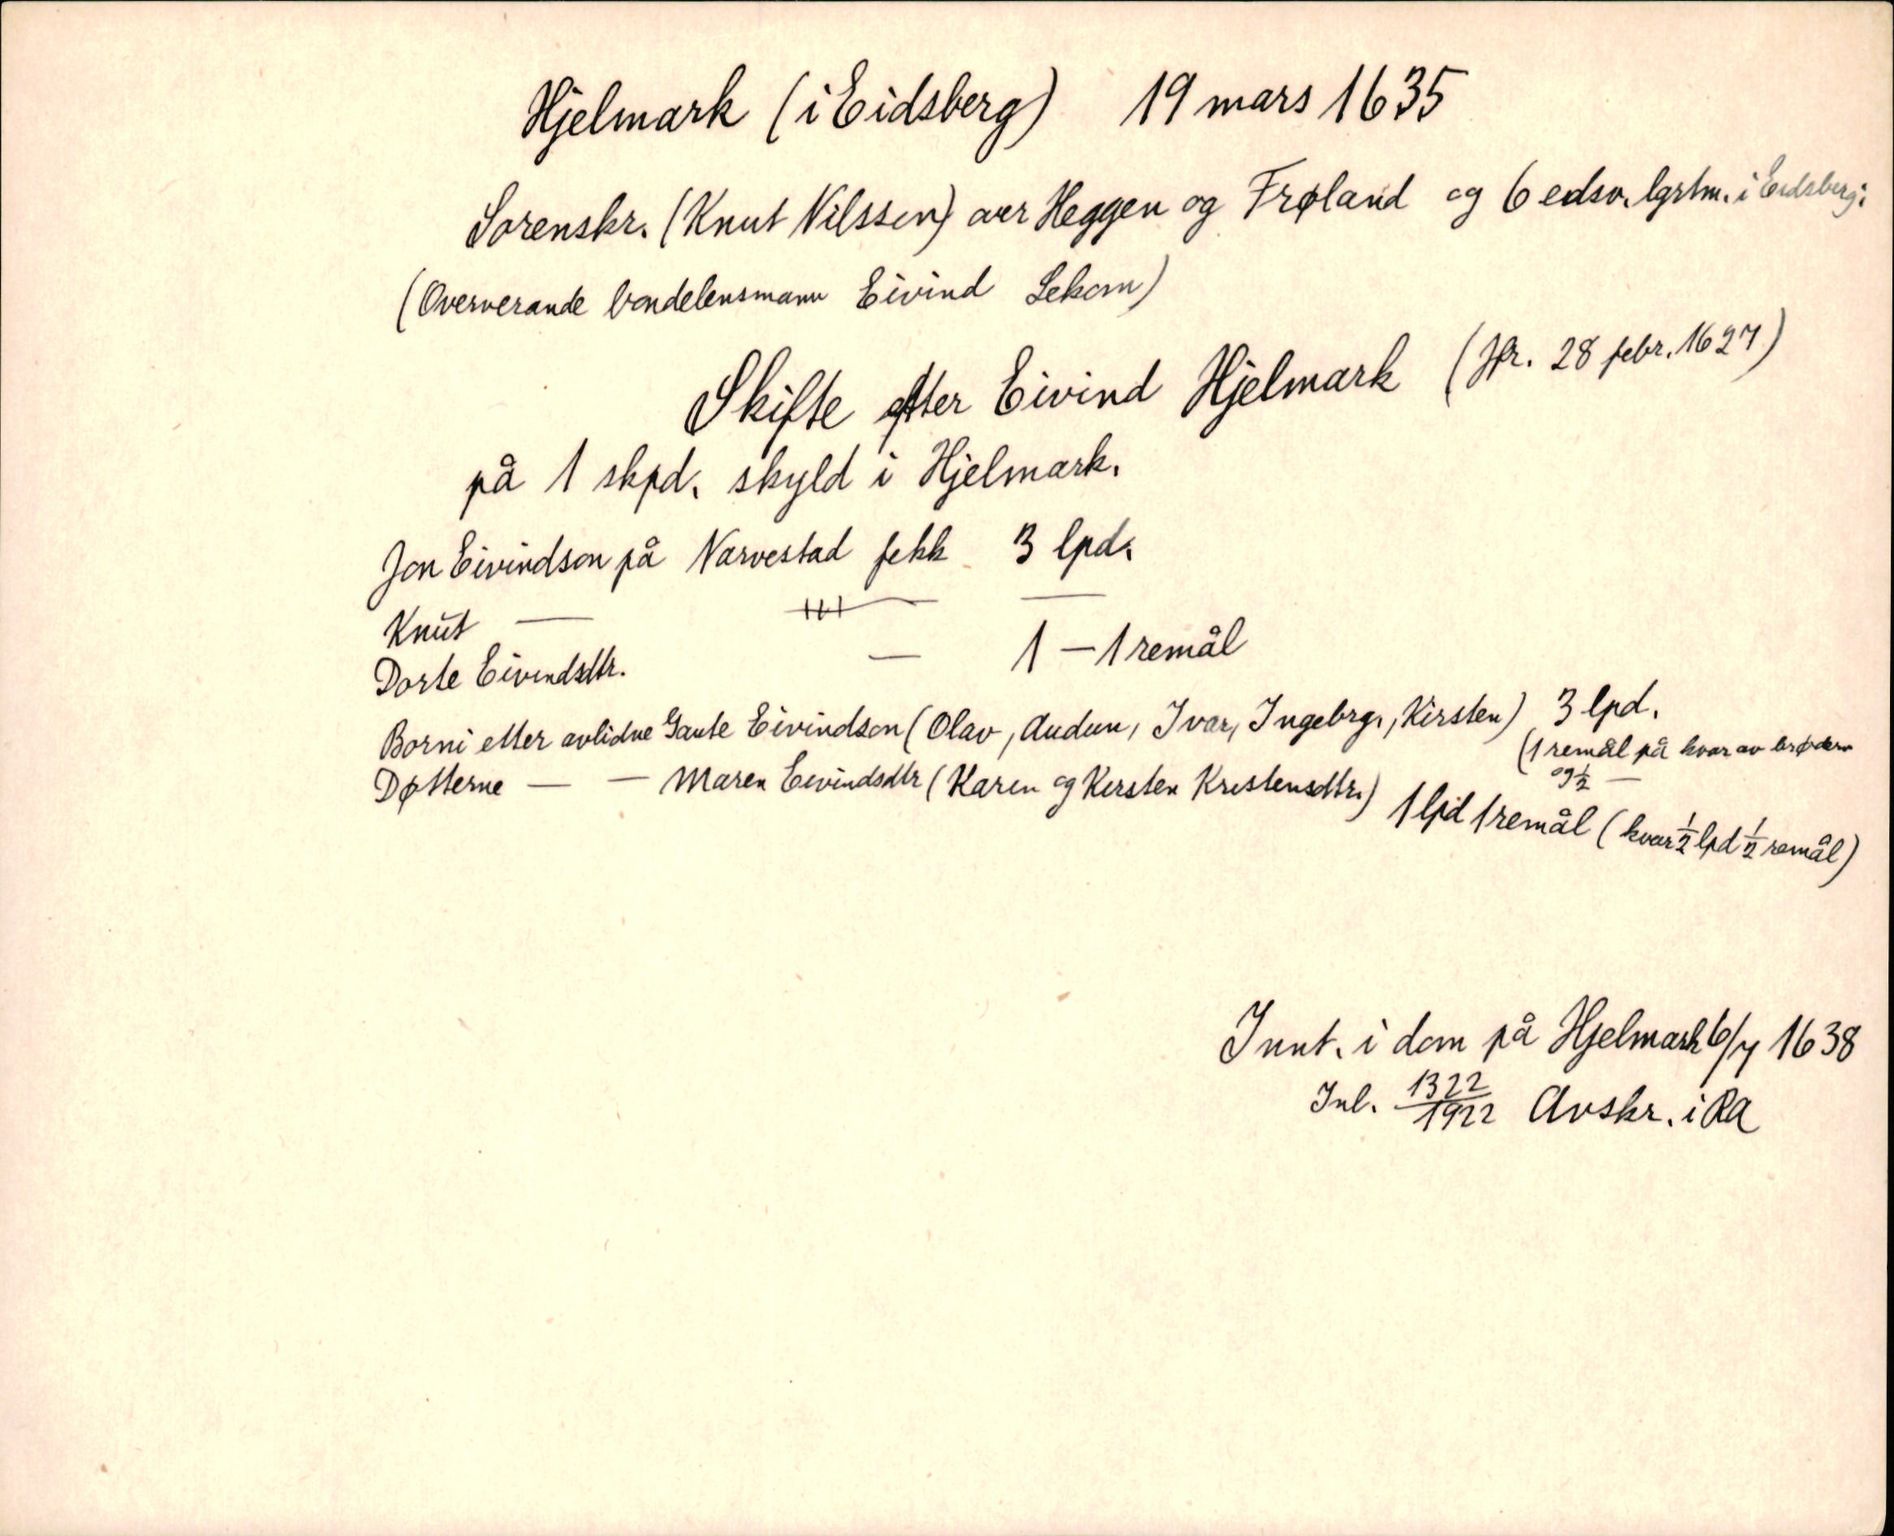 Hjelmark (i Eidsberg) 19 mars 1635
Sorenskr. (Knut Nilssen) over Heggen og Frøland og 6 edsv. lgrtm. i Eidsberg:
(Ververande bondelensmann Eivind Lekom)
Skifte etter Eivind Hjelmark (Jfr. 28 febr. 1627)
på 1 skpd. skyld i Hjelmark.
Jon Eivindson på Narvestad fekk 3 lpd.
Knut — — —
Dorte Eivindsdtr. — 1 — 1 remål
Borni etter avlidne Gaute Eivindson (Olav, Audun, Ivar, Ingebrg., Kirsten) 3 lpd.
(1 remål på kvar av brødrne
og ½ —
Døtterne — — Maren Eivindsdtr (Karen og Kirsten Kristensdtr.) 1 lpd 1 remål (kvar ½ lpd ½ remål)
Innt. i dom på Hjelmark 6/7 1638
Jnl. 1322/1922 Avskr. i RA